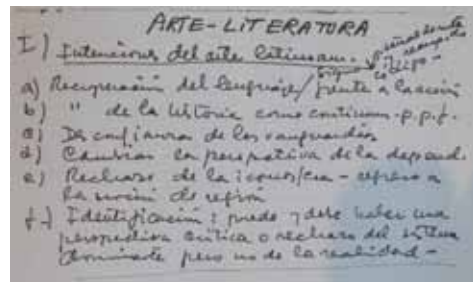 ARTE-LITERATURA
I) Intenciones del arte latinoam.
a) Recuperación del lenguaje / frente a la
b) " de la historia como continuum - p.p.f.
c) Desconfianza de las vanguardias
d) Cambiar la perspectiva de la depend.
e) Rechazo de la - regreso a
la noción de región
f-) Identificación: puede y debe haber una
perspectiva crítica o rechazo del sistema
dominante pero no de la realidad -